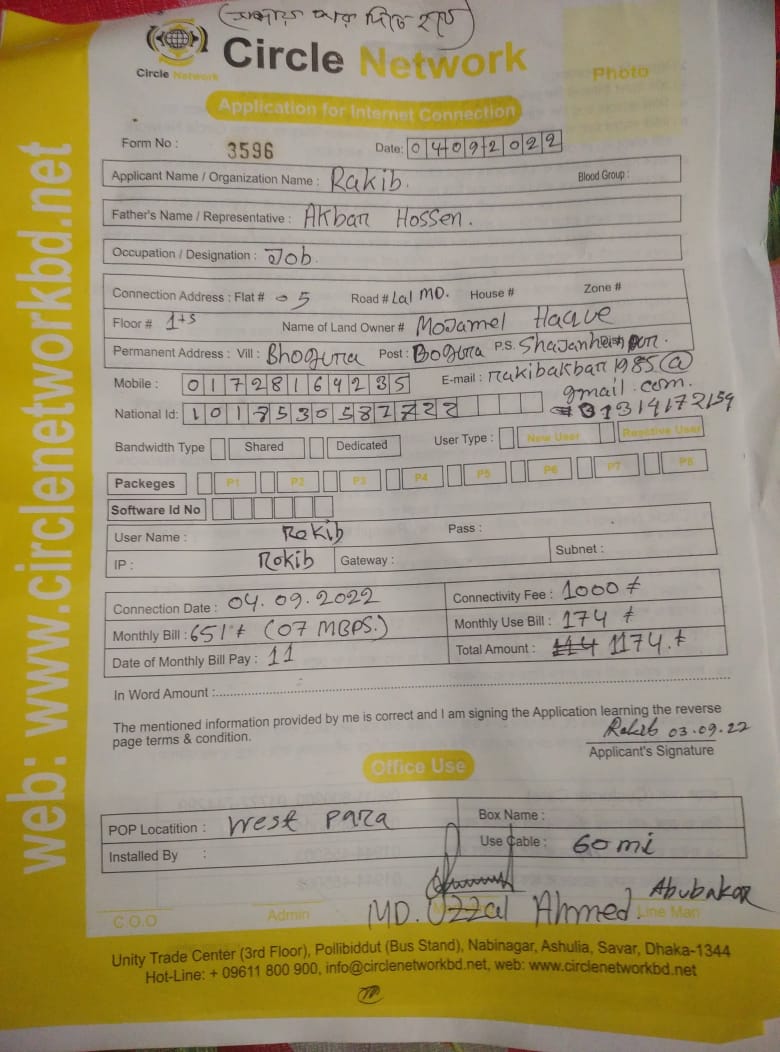 (আবার পার দিতে হবে)
Circle Network
Circle Network
Photo
Application for Internet Connection
Form No : 3596 Date: 04092022
Applicant Name / Organization Name : Rakib. Blood Group :
Father's Name / Representative : Akbar Hossen.
Occupation / Designation : Job.
Connection Address : Flat # 5 Road # Lal MD. House # Zone #
Floor # 1+5 Name of Land Owner # Mojamel Haque
Permanent Address : Vill : Bhogura Post : Bogura P.S.
Mobile : 01728164235 E-mail : rakibakbar1985@
gmail.com.
National Id: 01314172159
Bandwidth Type Shared Dedicated User Type : New User Reactive User
Packeges P1 P2 P3 P4 P5 P6 P7 P8
Software Id No
User Name : Rokib Pass :
IP : Rokib Gateway : Subnet :
Connection Date : 04.09.2022 Connectivity Fee : 1000 ৳
Monthly Bill : 651 ৳ (07 MBPS.) Monthly Use Bill : 174 ৳
Date of Monthly Bill Pay : 11 Total Amount : 1174.৳
In Word Amount :
The mentioned information provided by me is correct and I am signing the Application learning the reverse
page terms & condition.
Rakib 03.09.22
Applicant's Signature
Office Use
POP Locatition : West Para Box Name :
Installed By : Use Cable : 60 mi
MD. Uzzal Ahmed. Abubakar
C.O.O Admin Line Man
Unity Trade Center (3rd Floor), Pollibiddut (Bus Stand), Nabinagar, Ashulia, Savar, Dhaka-1344
Hot-Line: + 09611 800 900, info@circlenetworkbd.net, web: www.circlenetworkbd.net
web: www.circlenetworkbd.net